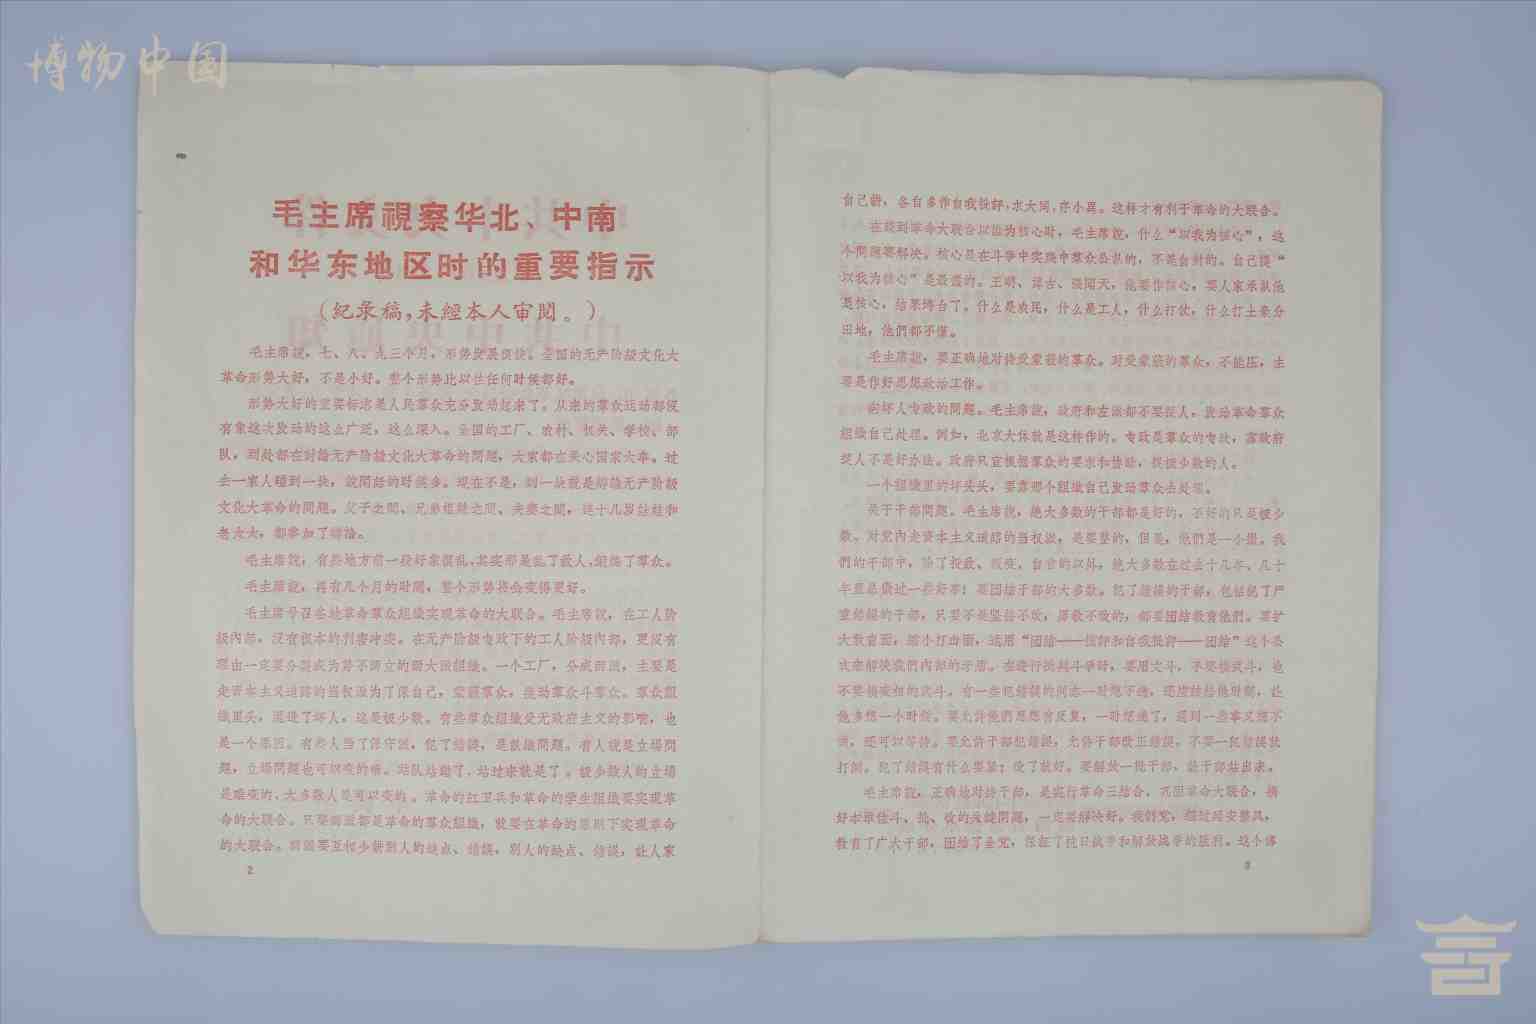 博物中国
毛主席視察华北、中南
和华东地区时的重要指示
（紀录稿，未經本人审閱。）
毛主席說，七、八、九三个月，形势发展很快。全国的无产阶級文化大
革命形势大好，不是小好。整个形势比以往任何时候都好。
形势大好的重要标志是人民羣众充分发动起来了。从来的羣众运动都沒
有象这次发动的这么广泛，这么深入。全国的工厂、农村、机关、学校、部
队，到处都在討論无产阶級文化大革命的問題，大家都在关心国家大事。过
去一家人碰到一块，說閑話的时候多。現在不是，到一块就是辯論无产阶級
文化大革命的問題。父子之間、兄弟姐妹之間、夫妻之間，連十几岁娃娃和
老太太，都参加了辯論。
毛主席說，有些地方前一段好象很乱，其实那是乱了敌人，鍛炼了羣众。
毛主席說，再有几个月的时間，整个形势将会变得更好。
毛主席号召各地革命羣众組織实現革命的大联合。毛主席說，在工人阶
級內部，沒有根本的利害冲突。在无产阶級专政下的工人阶級內部，更沒有
理由一定要分裂成为势不两立的两大派組織。一个工厂，分成两派，主要是
走資本主义道路的当权派为了保自己，蒙蔽羣众，挑动羣众斗羣众。羣众組
織里头，混进了坏人，这是极少数。有些羣众組織受无政府主义的影响，也
是一个原因。有些人当了保守派，犯了錯誤，是認識問題。有人說是立場問
題，立場問題也可以变的嘛。站队站錯了，站过来就是了。极少数人的立場
是难变的，大多数人是可以变的。革命的紅卫兵和革命的学生組織要实現革
命的大联合。只要两派都是革命的羣众組織，就要在革命的原則下实現革命
的大联合。两派要互相少說別人的缺点、錯誤，別人的缺点、錯誤，让人家
2
自己說，各自多作自我批評，求大同，存小異。这样才有利于革命的大联合。
在談到革命大联合以誰为核心时，毛主席說，什么“以我为核心”，这
个問題要解决。核心是在斗争中实践中羣众公認的，不是自封的。自己提“
以我为核心”是最蠢的。王明、博古、張聞天，他要作核心，要人家承認他
是核心，結果垮台了。什么是农民，什么是工人，什么打仗，什么打土豪分
田地，他們都不懂。
毛主席說，要正确地对待受蒙蔽的羣众。对受蒙蔽的羣众，不能压，主
要是作好思想政治工作。
向坏人专政的問題。毛主席說，政府和左派都不要捉人，发动革命羣众
組織自己处理。例如，北京大体就是这样作的。专政是羣众的专政，靠政府
捉人不是好办法。政府只宜根据羣众的要求和协助，捉极少数的人。
一个組織里的坏头头，要靠那个組織自己发动羣众去处理。
关于干部問題。毛主席說，絕大多数的干部都是好的，不好的只是极少
数。对党內走資本主义道路的当权派，是要整的，但是，他們是一小撮。我
們的干部中，除了投敌、叛变、自首的以外，絕大多数在过去十几年、几十
年里总做过一些好事！要团結干部的大多数。犯了錯誤的干部，包括犯了严
重錯誤的干部，只要不是坚持不改，屡教不改的，都要团結教育他們。要扩
大教育面，縮小打击面，运用“团結——批評和自我批評——团結”这个公
式来解决我們內部的矛盾。在进行批判斗爭时，要用文斗，不要搞武斗，也
不要搞变相的武斗。有一些犯錯誤的同志一时想不通，还应該給他时間，让
他多想一个时候。要允許他們思想有反复，一时想通了，遇到一些事又想不
通，还可以等待。要允許干部犯錯誤，允許干部改正錯誤。不要一犯錯誤就
打倒。犯了錯誤有什么要紧！改了就好。要解放一批干部，让干部站出来。
毛主席說，正确地对待干部，是实行革命三結合，巩固革命大联合，搞
好本单位斗、批、改的关键問題，一定要解决好。我們党，經过延安整風，
教育了广大干部，团結了全党，保証了抗日战爭和解放战爭的胜利。这个傳
3